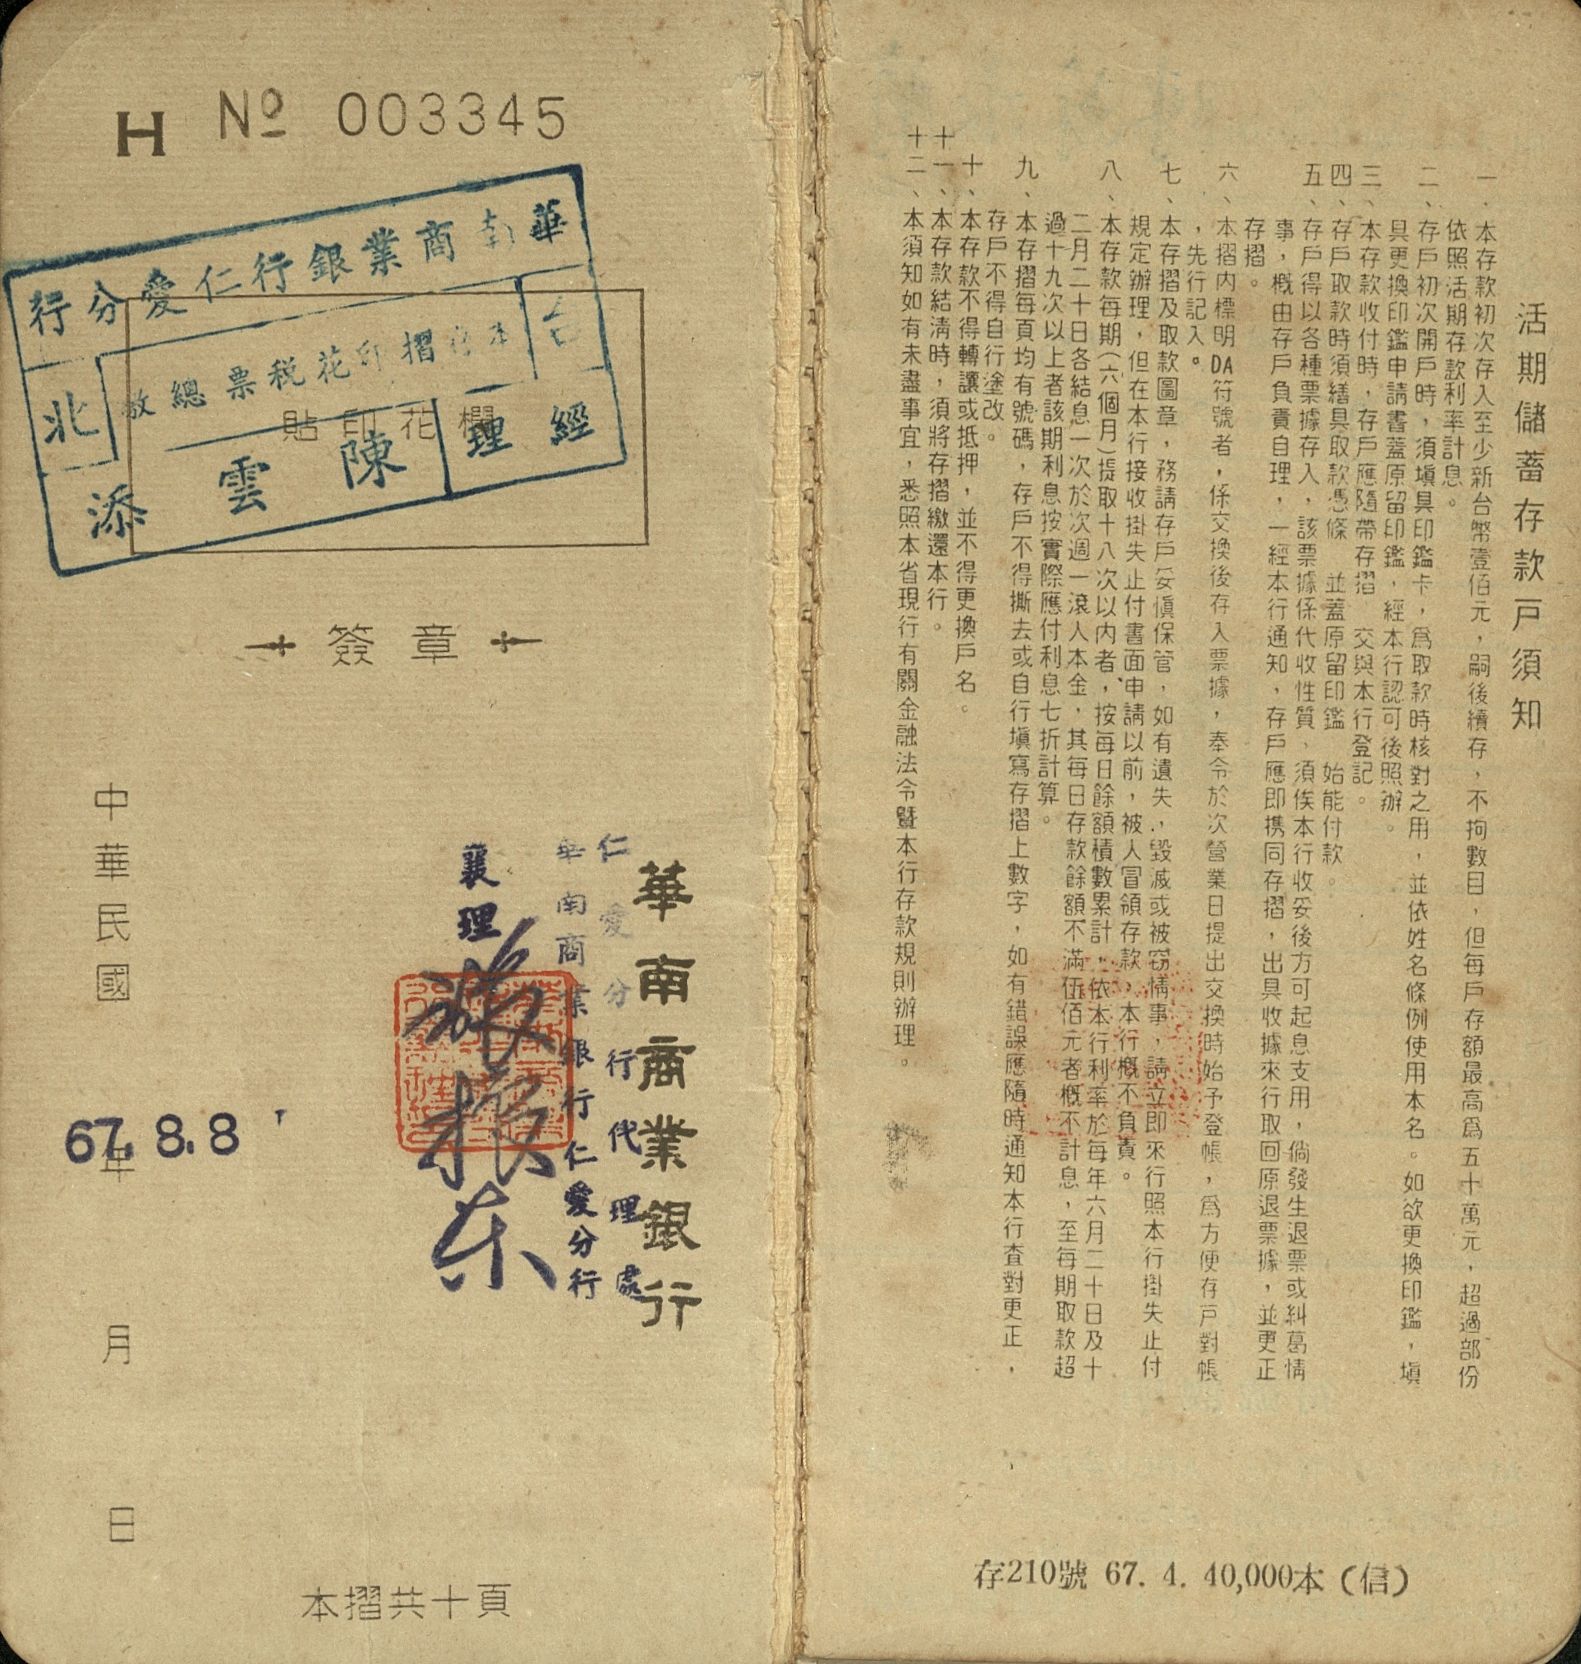 活期儲蓄存款戶須知
一、本存款初次存入至少新台幣壹佰元，嗣後續存，不拘數目，但每戶存額最高為五十萬元，超過部份
依照活期存款利率計息。
二、存戶初次開戶時，須塡具印鑑卡，為取款時核對之用，並依姓名條例使用本名。如欲更換印鑑，塡
具更換印鑑申請書蓋原留印鑑，經本行認可後照辦。
三、本存款收付時，存戶應隨帶存摺 交與本行登記。
四、存戶取款時須繕具取款憑條 並蓋原留印鑑 始能付款。
五、存戶得以各種票據存入，該票據係代收性質，須俟本行收妥後方可起息支用，倘發生退票或糾葛情
事，概由存戶負責自理，一經本行通知，存戶應即携同存摺，出具收據來行取回原退票據，並更正
存摺。
六、本摺內標明DA符號者，係交換後存入票據，奉令於次營業日提出交換時始予登帳，為方便存戶對帳
，先行記入。
七、本存摺及取款圖章，務請存戶妥愼保管，如有遺失，毀滅或被窃情事，請立即來行照本行掛失止付
規定辦理，但在本行接收掛失止付書面申請以前，被人冒領存款，本行概不負責。
八、本存款每期(六個月)提取十八次以內者，按每日餘額積數累計，依本行利率於每年六月二十日及十
二月二十日各結息一次於次週一滾入本金，其每日存款餘額不滿伍佰元者概不計息，至每期取款超
過十九次以上者該期利息按實際應付利息七折計算。
九、本存摺每頁均有號碼，存戶不得撕去或自行塡寫存摺上數字，如有錯誤應隨時通知本行查對更正，
存戶不得自行塗改。
十、本存款不得轉讓或抵押，並不得更換戶名。
十一、本存款結淸時，須將存摺繳還本行。
十二、本須知如有未盡事宜，悉照本省現行有關金融法令暨本行存款規則辦理。
存210號 67. 4. 40,000本（信）
H № 003345
華南商業銀行仁愛分行
台北
本存摺印花稅票總繳
經理 陳雲添
貼印花欄
簽章
華南商業銀行
仁愛分行代理處
華南商業銀行仁愛分行
襄理
中華民國 年 月 日
67. 8. 8
本摺共十頁